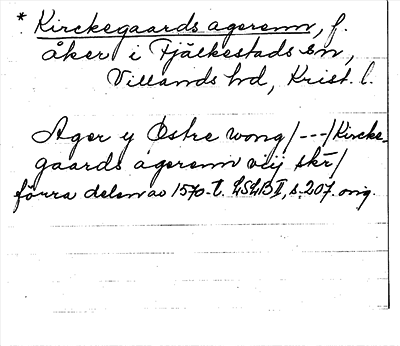 * Kirckegaards ageremn, f.
åker i Fjälkestads sn,
Villands hd, Krist. l.
Ager y Østre wong/---/Kircke-
gaards ageremn veij skr/
förra delen av 1570-t. LSLB II, s. 207. orig.